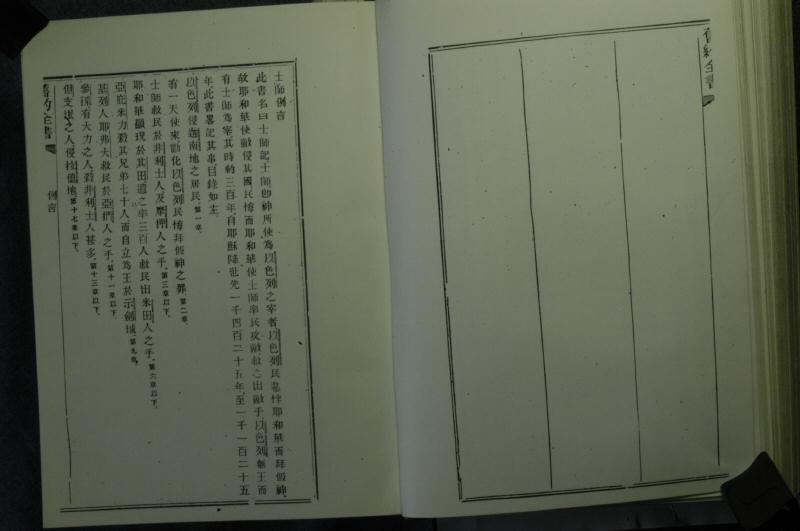 舊約全書
士師例言
此書名曰士師記士師即神所使為以色列之宰者以色列民違悖耶和華而拜假神、
故耶和華使敵侵其國民悔而耶和華使士師率民攻敵救之出敵手以色列無王而
有士師為宰其時約三百年、自耶穌降世先一千四百二十五年、至一千一百二十五
年、此書畧記其事目錄如左、
以色列侵迦南地之居民、第一章、
有一天使來勸化以色列民悔拜假神之罪第二章、
士師救民於非利士人及摩押人之手、第三章以下、
耶和華顯現於其田遣之率三百人救民出米田人之手、第六章以下、
亞庇米力殺其兄弟七十人、而自立為王於示劍城、第九章、
基列人耶弗大救民於亞捫人之手、第十一章以下、
參孫有大力之人殺非利士人甚多、第十三章以下、
但支派之人侵拉億地第十七章以下、
舊約全書
例言